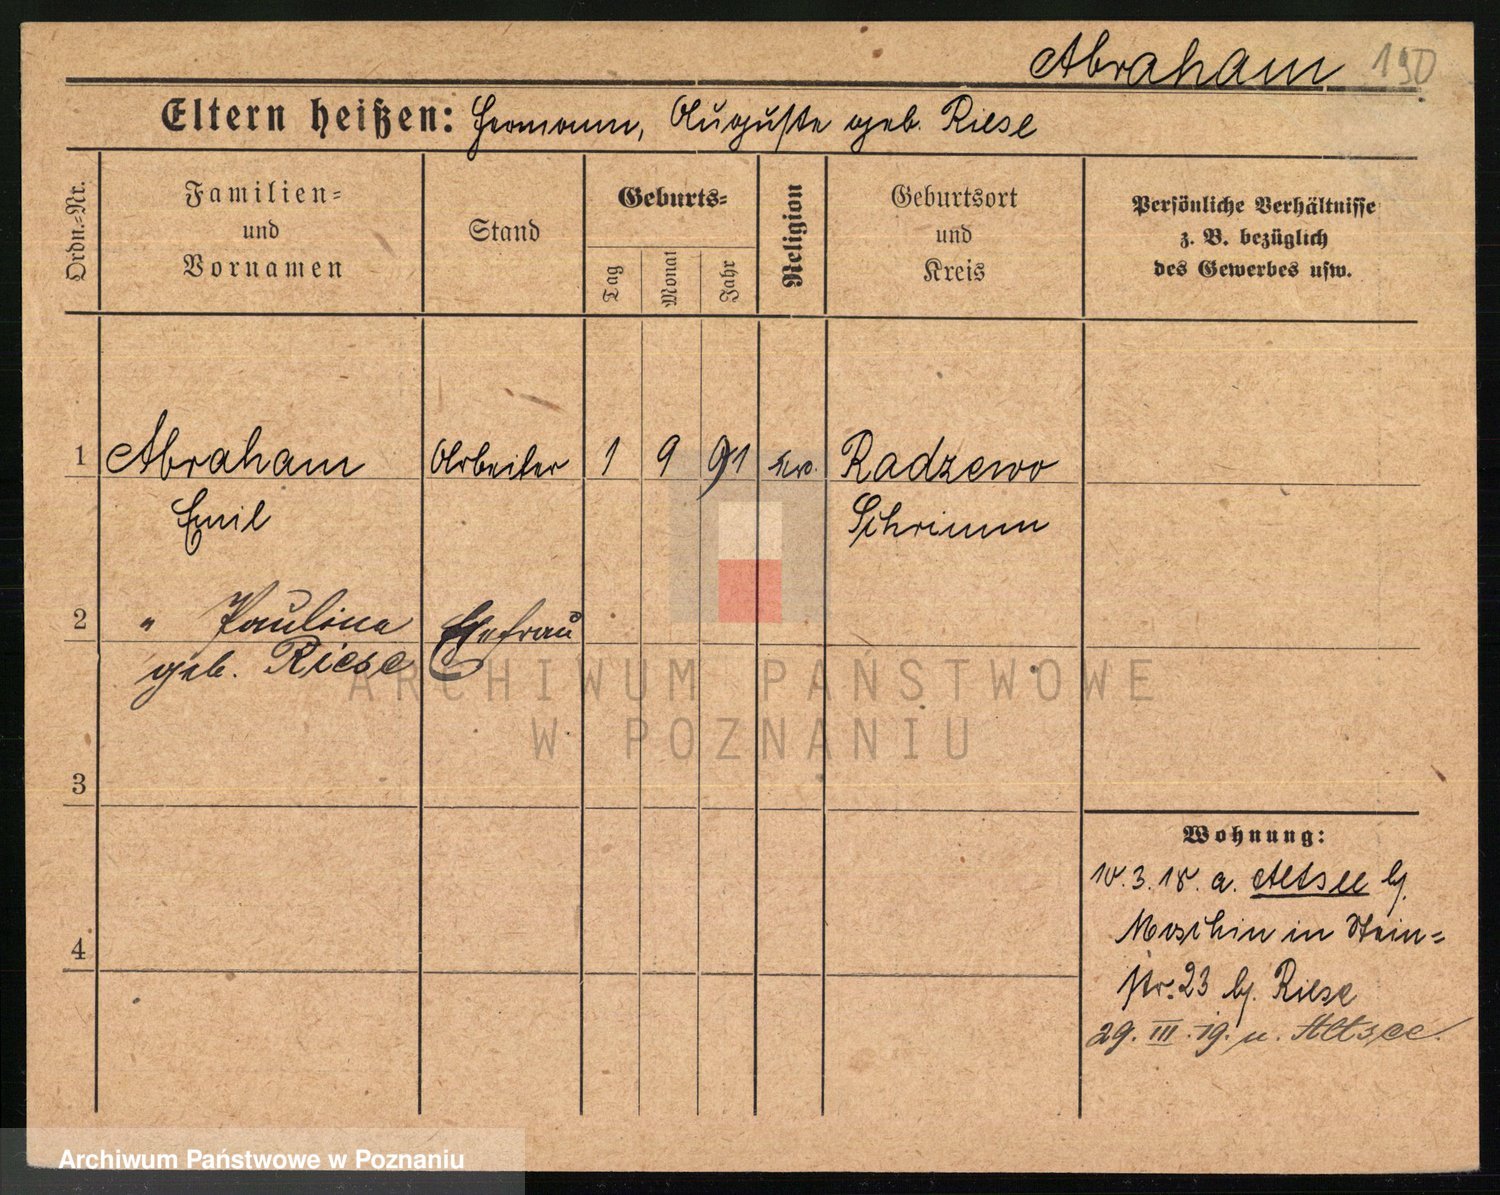 Abraham 190
Eltern heißen: Hermann, Auguste geb. Riese
Ordn.=Nr.
Familien=
und
Vornamen
Stand
Geburts=
Tag
Monat
Jahr
Religion
Geburtsort
und
Kreis
Persönliche Verhältnisse
z. B. bezüglich
des Gewerbes usw.
1 Abraham Arbeiter 1 9 91 ev. Radzewo
Emil Schrimm
2 " Paulina Ehefrau
geb. Riese
3
4
Wohnung:
10.3.18. a. Altsee b.
Moschin in Stein=
str. 23 b. Riese
29. III. 19. n. Altsee.
ARCHIWUM PAŃSTWOWE
W POZNANIU
Archiwum Państwowe w Poznaniu